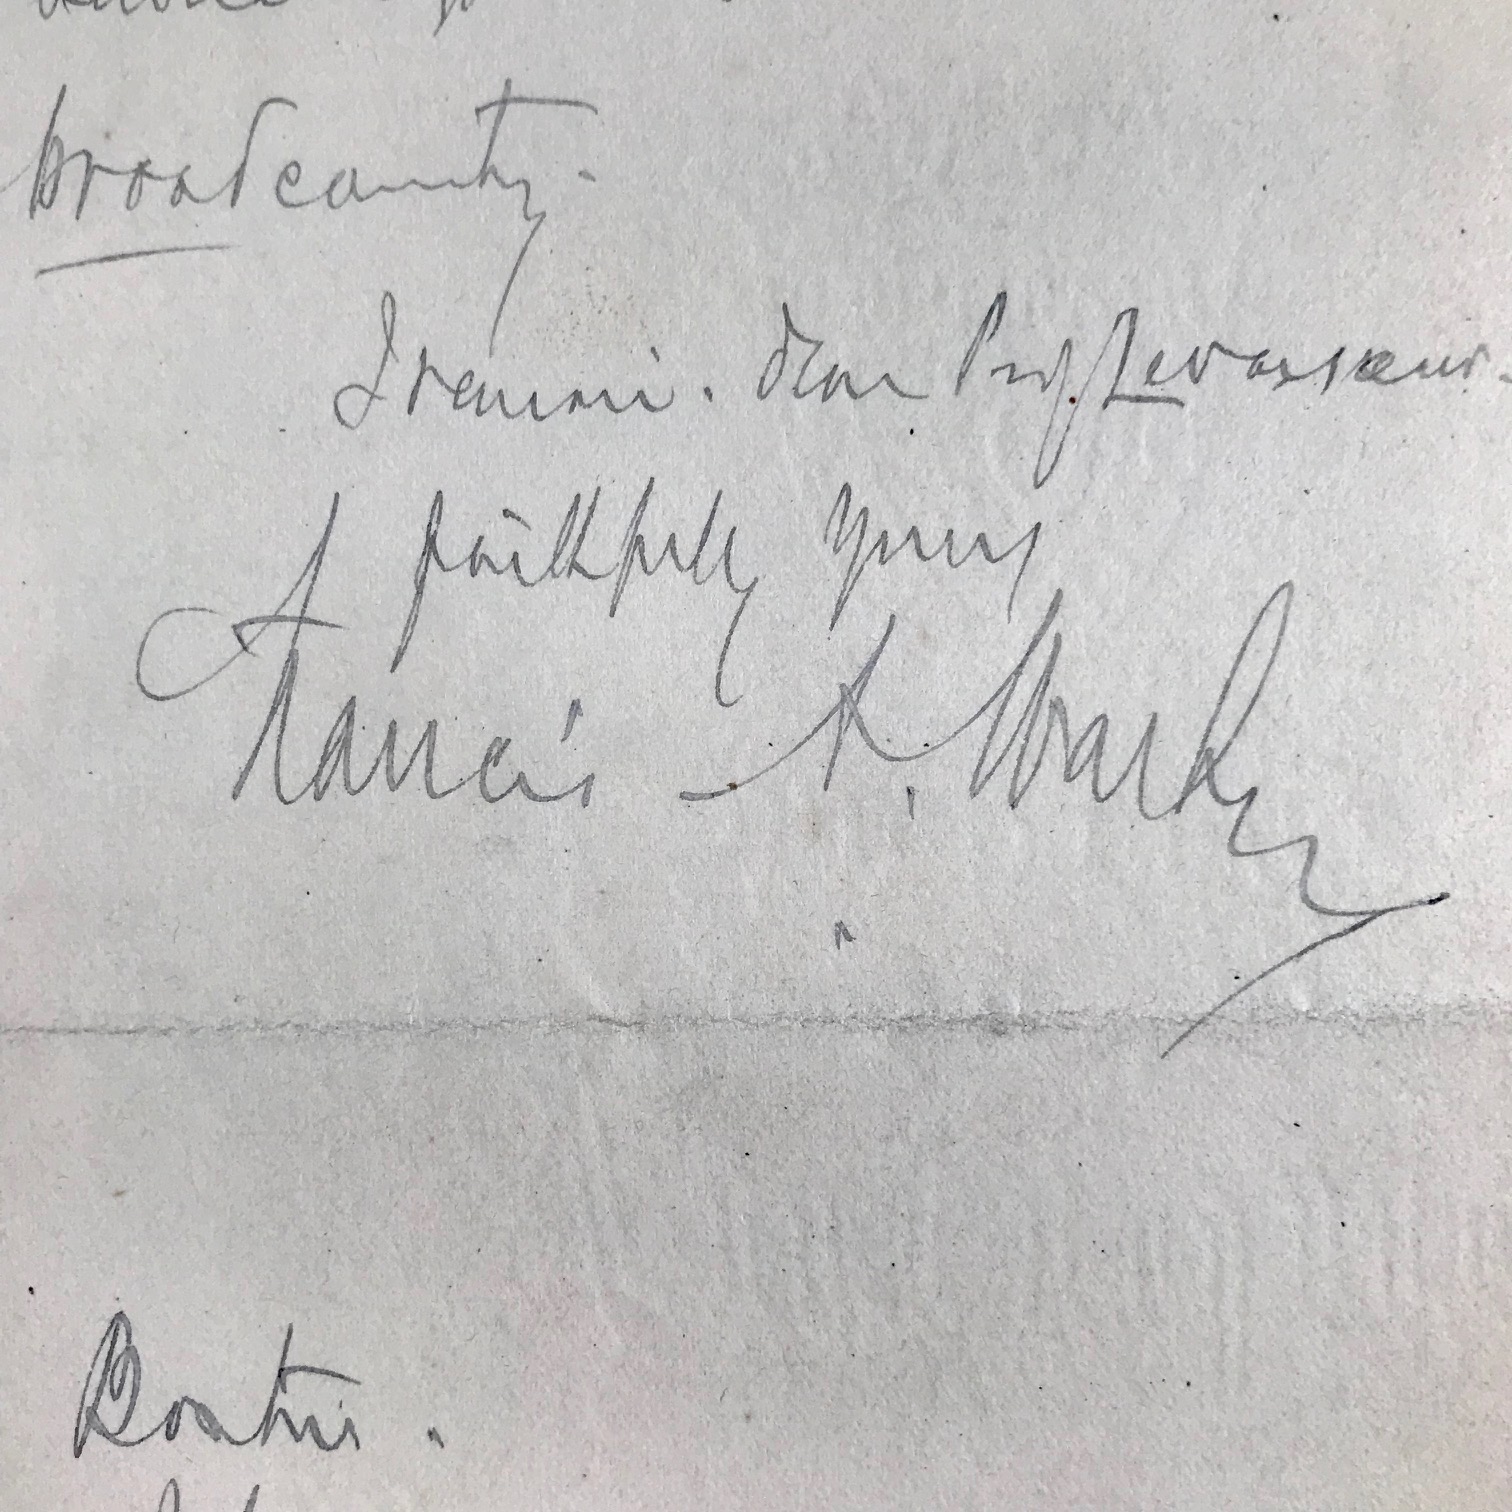 broad county.
I remain. dear Prof Levasseur.
faithfully yours
Francis A. Walker
Boston.